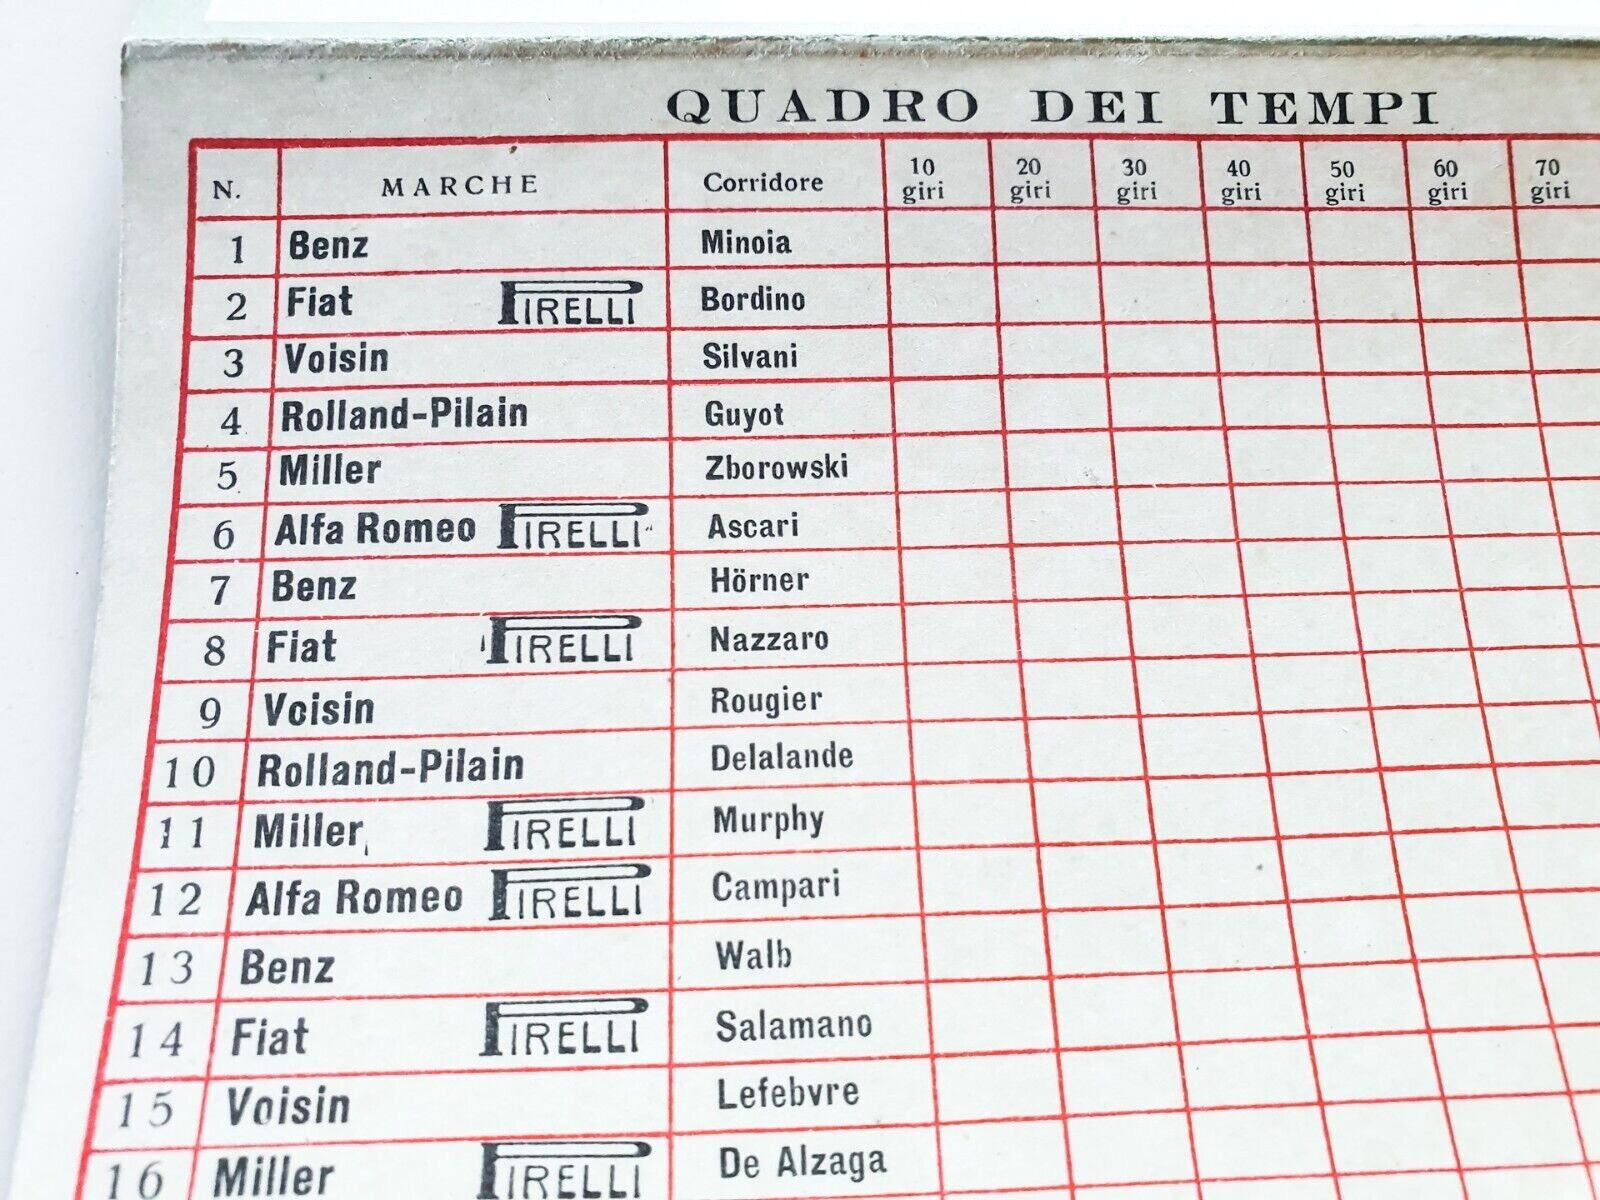 QUADRO DEI TEMPI
N. MARCHE Corridore 10 giri 20 giri 30 giri 40 giri 50 giri 60 giri 70 giri
1 Benz Minoia
2 Fiat PIRELLI Bordino
3 Voisin Silvani
4 Rolland-Pilain Guyot
5 Miller Zborowski
6 Alfa Romeo PIRELLI Ascari
7 Benz Hörner
8 Fiat PIRELLI Nazzaro
9 Voisin Rougier
10 Rolland-Pilain Delalande
11 Miller PIRELLI Murphy
12 Alfa Romeo PIRELLI Campari
13 Benz Walb
14 Fiat PIRELLI Salamano
15 Voisin Lefebvre
16 Miller PIRELLI De Alzaga